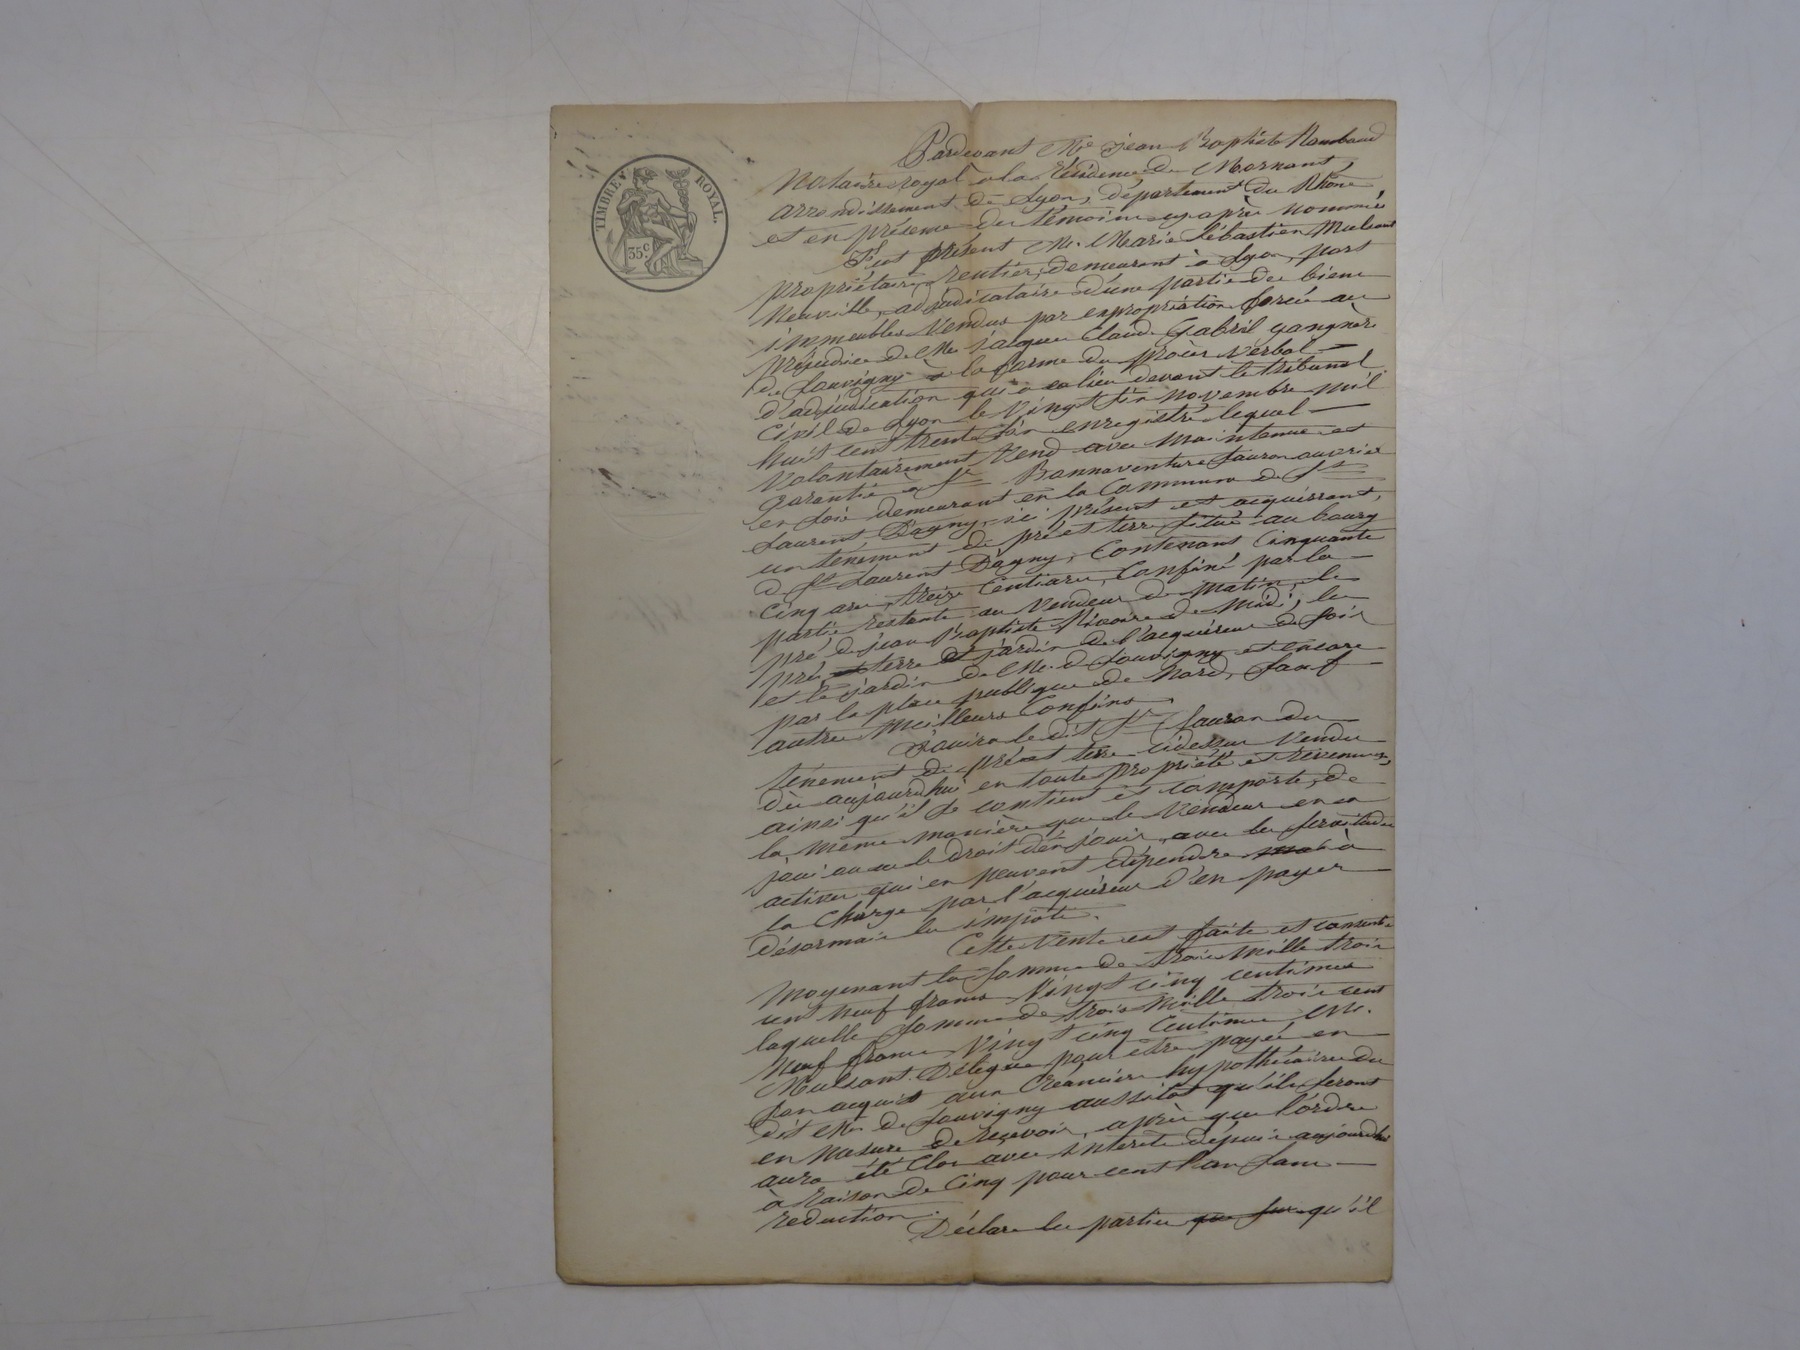 TIMBRE ROYAL.
35 c.
Pardevant Me jean Baptiste Rambaud
Notaire royal a la Résidence de Mornant,
arrondissement de Lyon, département du Rhône
et en présence des témoins cy après nommés,
Fut présent Mr. Marie Sébastien Mulsant
propriétaire, rentier, demeurant à Lyon, port
Neuville, adjudicataire d'une partie des biens
immeubles Vendus par expropriation forcée au
préjudice de Mr jacques Claude Gabriel gangnère
de Souvigny à la forme du procès verbal
d'adjudication qui a eu lieu devant le tribunal
Civil de Lyon le Vingt six novembre mil
huit cent trente six enregistré, lequel
Volontairement Vend avec maintenue et
garantie a Sr Bonnaventure Fauron ouvrier
en soie demeurant en la Commune de St
Laurent Dagny, ici présent et acquérrant,
un tenement de pré et terre situé au bourg
d St Laurent Dagny, Contenant Cinquante
Cinq ares, treize Centiares, Confiné par la
partie restante au Vendeur de Matin, le
pré de jean Baptiste de Midi, le
pré terre et jardin de l'acquéreur de soir
et le jardin de Mr. d Souvigny et encore
par la place publique de Nord, sauf
autres Meilleurs Confins.
Jouira le dit Sr Fauron du
ténement de pré et terre cidessus Vendu
dès aujourdhui en toute propriété et revenus,
ainsi qu'il se contient et comporte, de
la même manière que le Vendeur en a
joui ou eu le droit d'en jouir, avec les servitudes
actives qui en peuvent dépendre à
la Charge par l'acquéreur d'en payer
désormais les impots.
Cette Vente est faite et consentie
Moyenant la somme de trois mille trois
cent Neuf francs Vingt cinq centimes
laquelle somme de trois Mille trois cent
Neuf francs Vingt cinq Centimes Mr.
Mulsant Délègue pour être payée en
son acquit aux Créanciers hypothécaires du
dit Mr. de Souvigny aussitot qu'ils seront
en mesure de reçevoir, après que l'ordre
aura été Clos avec intérêts dépuis aujourdhui
à raison de Cinq pour cent l'an sans
reduction.
Déclare les parties que sur qu'il